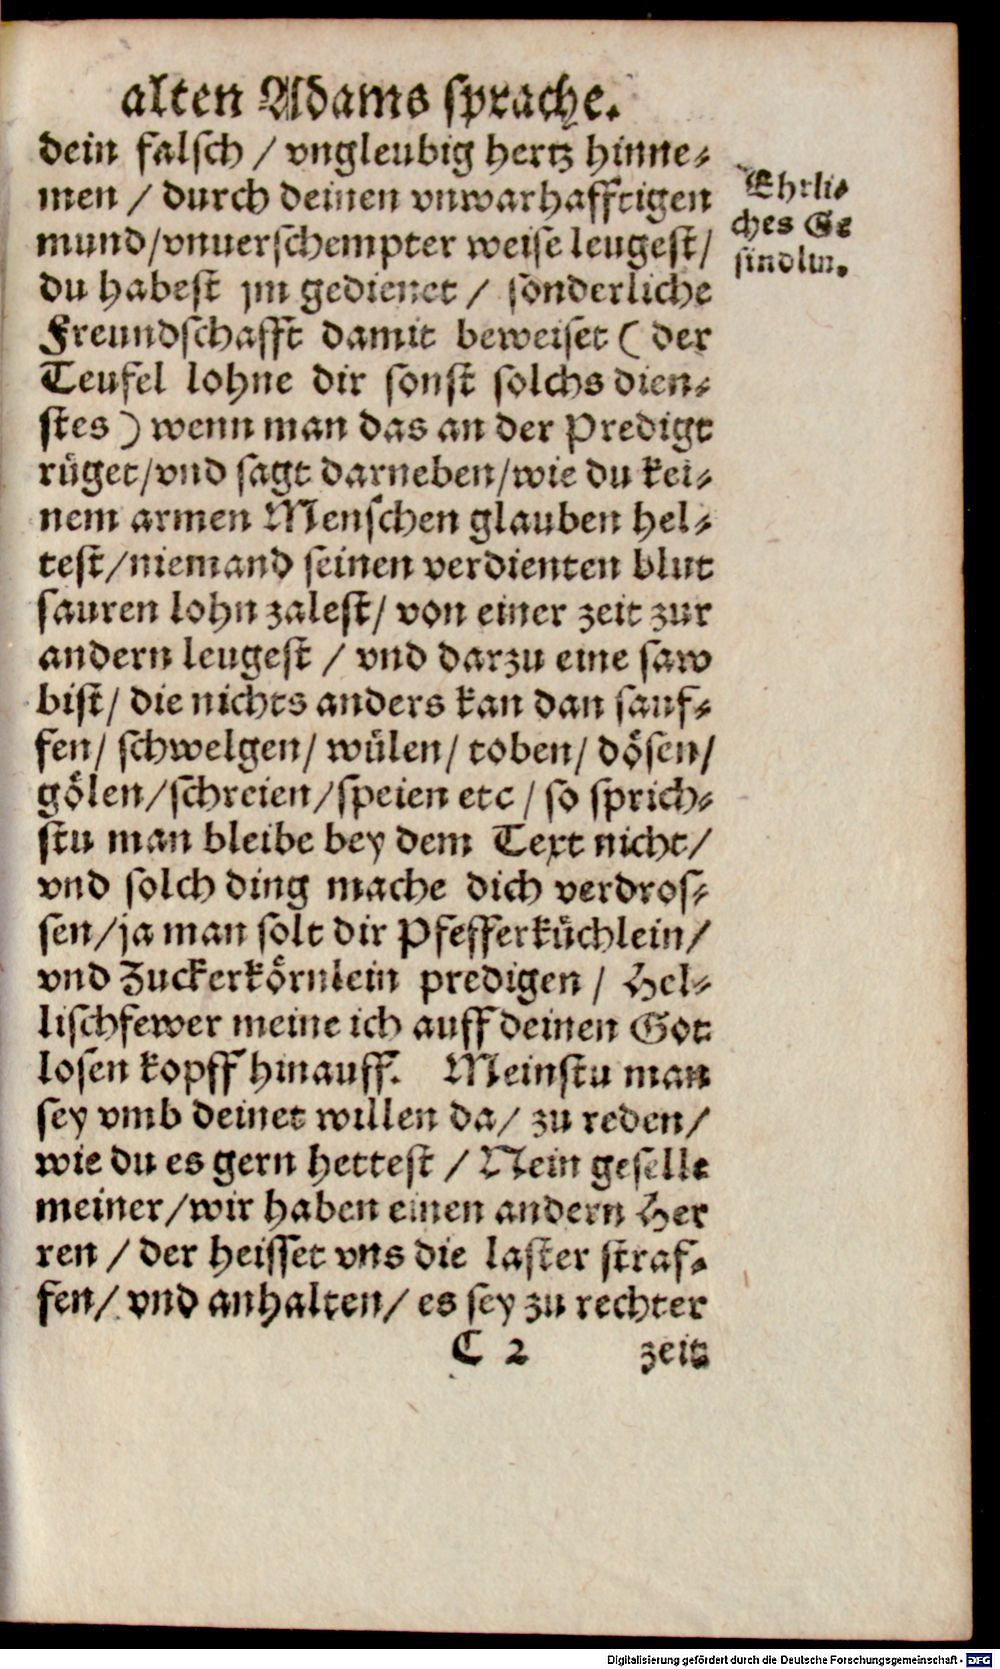 alten Adams sprache.
dein falsch / vngleubig hertz hinne⸗
men / durch deinen vnwarhafftigen
mund/vnuerschempter weise leugest/
du habest jm gedienet / sonderliche
Freundschafft damit beweiset ( der
Teufel lohne dir sonst solchs dien⸗
stes ) wenn man das an der Predigt
rüget/vnd sagt darneben/wie du kei⸗
nem armen Menschen glauben hel⸗
test/niemand seinen verdienten blut
sauren lohn zalest/ von einer zeit zur
andern leugest / vnd darzu eine saw
bist/ die nichts anders kan dan sauf⸗
fen/ schwelgen/ wülen/ toben/ dösen/
gölen/schreien/speien etc / so sprich⸗
stu man bleibe bey dem Text nicht/
vnd solch ding mache dich verdros⸗
sen/ja man solt dir Pfefferküchlein/
vnd Zuckerkörnlein predigen / Hel⸗
lischfewer meine ich auff deinen Got
losen kopff hinauff. Meinstu man
sey vmb deinet willen da/ zu reden/
wie du es gern hettest / Nein geselle
meiner/wir haben einen andern Her
ren / der heisset vns die laster straf⸗
fen/ vnd anhalten/ es sey zu rechter
C 2 zeit
Ehrli⸗
ches Ge
sindlin.
Digitalisierung gefördert durch die Deutsche Forschungsgemeinschaft - DFG